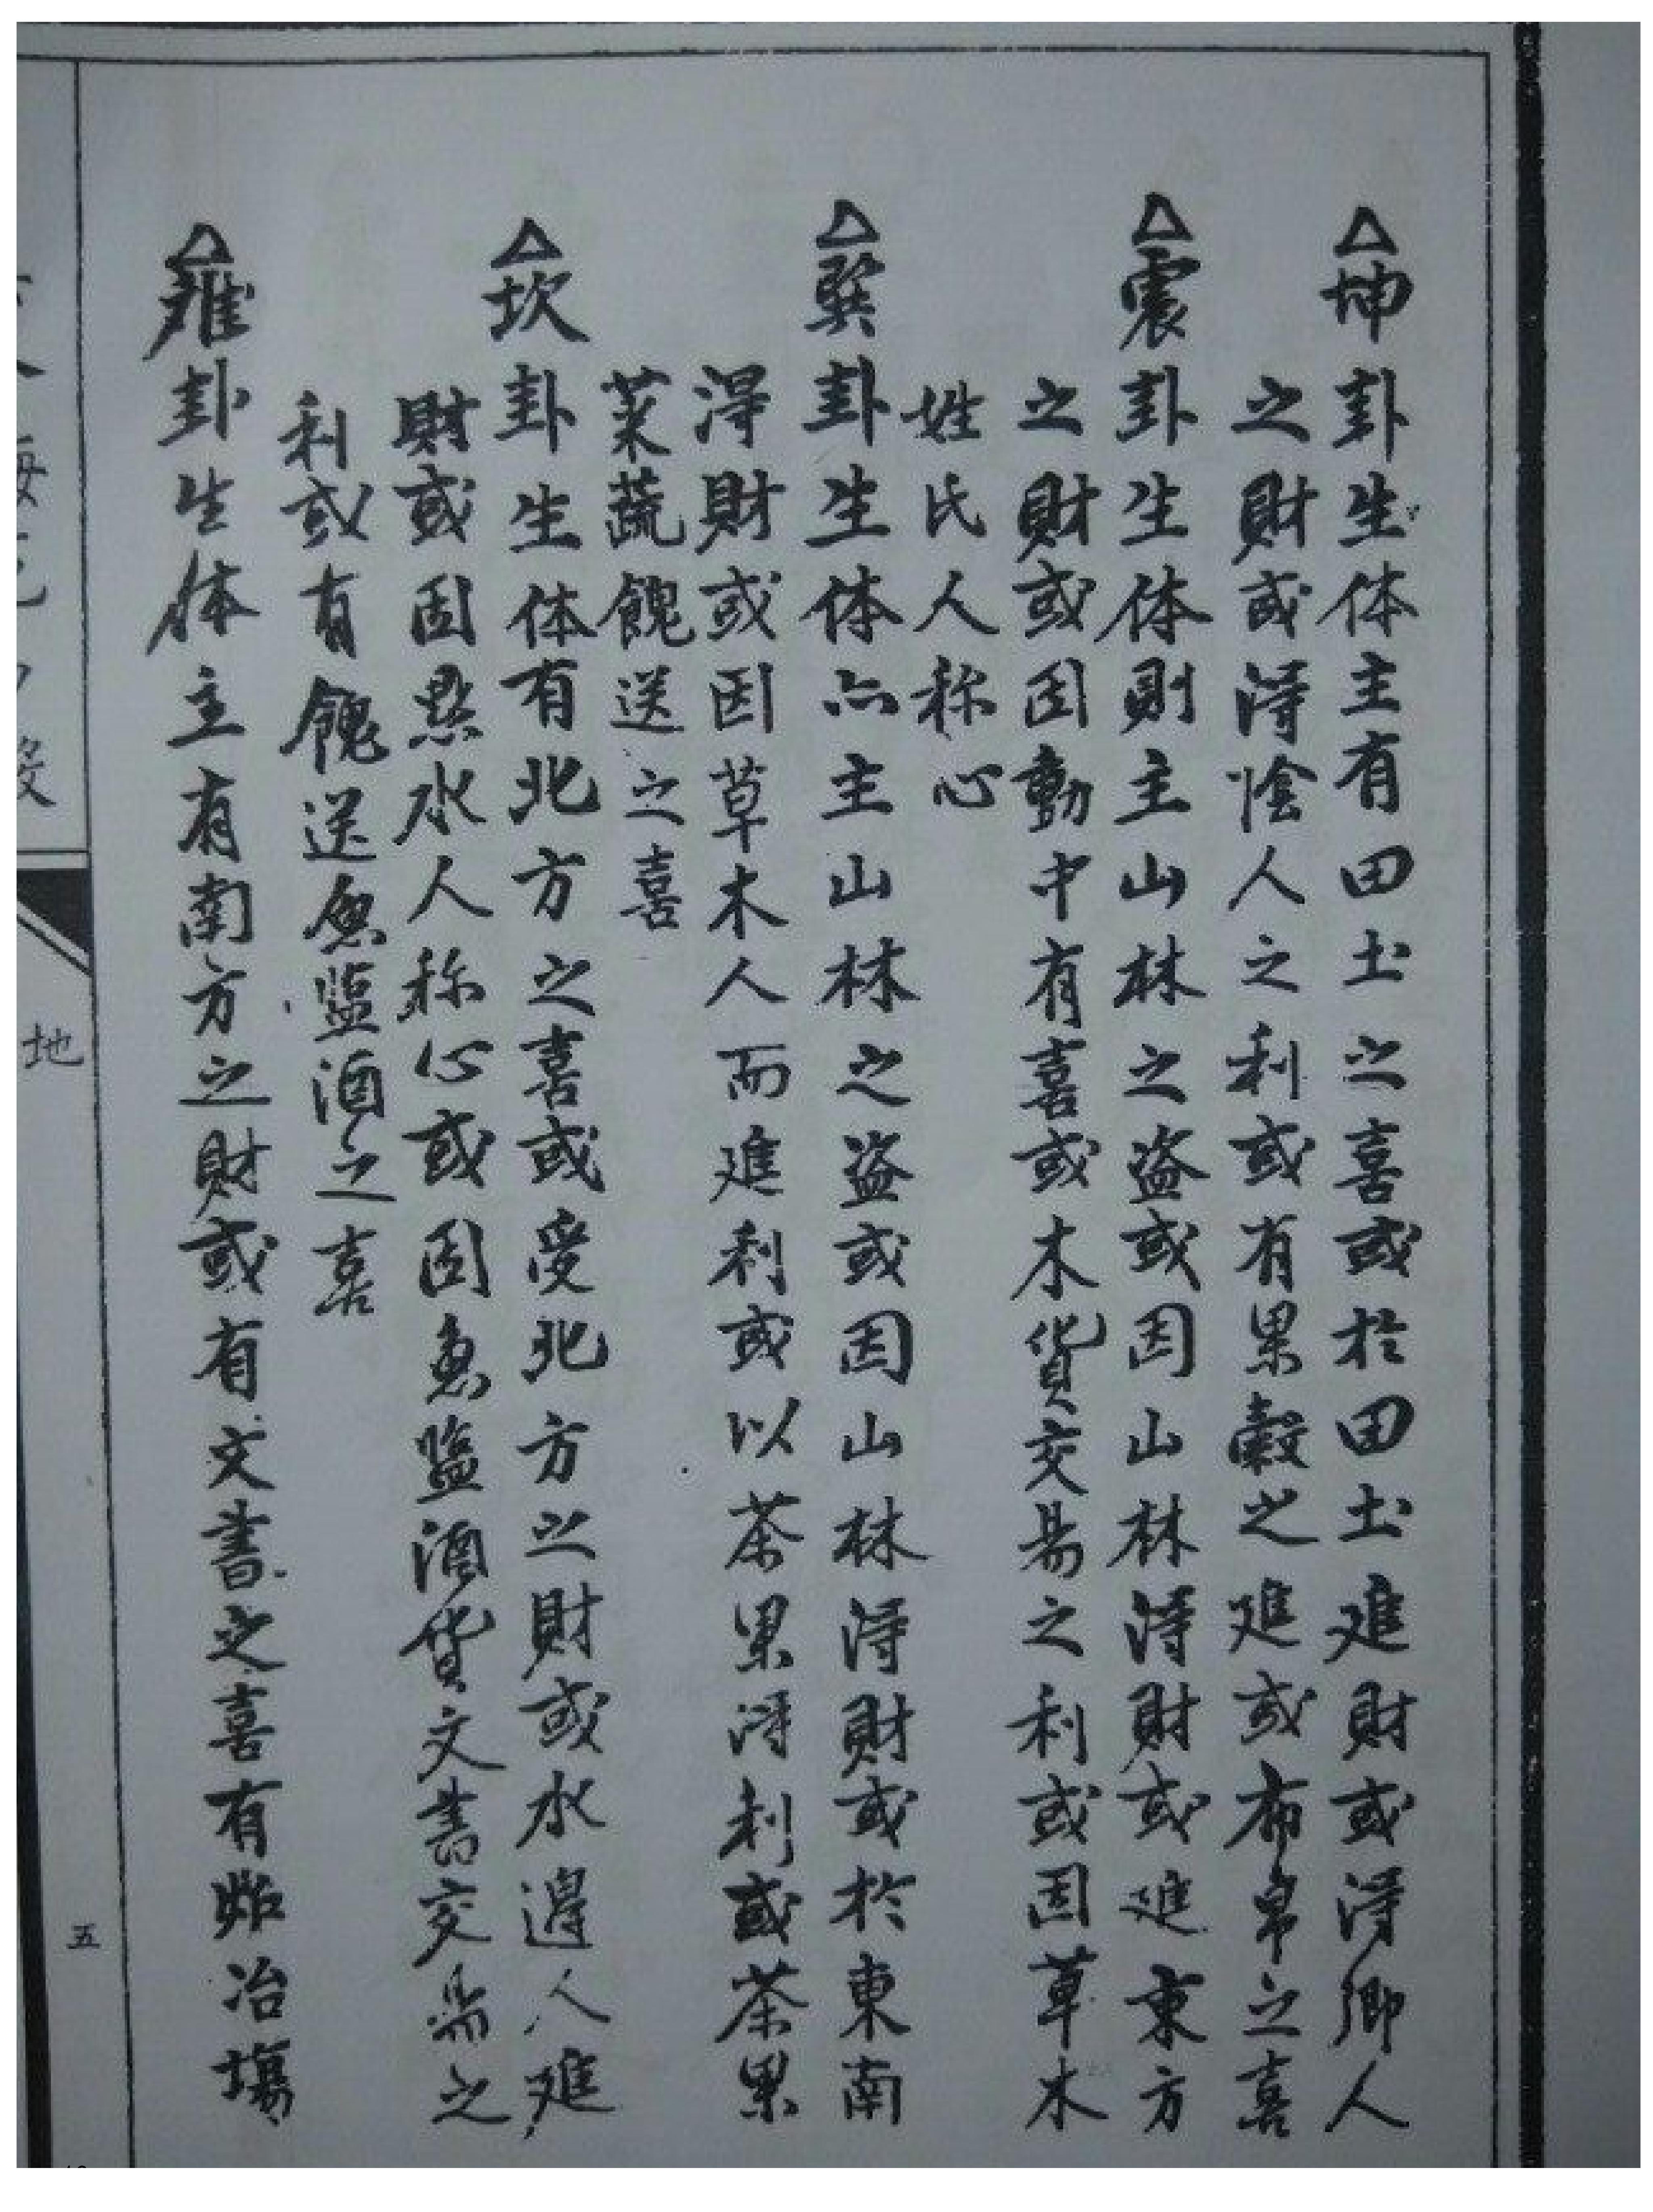 △坤卦生体主有田土之喜或於田土进財或淂鄉人
之財或淂陰人之利或有果穀之进或布帛之喜
△震卦生体則主山林之盗或因山林淂財或进東方
之財或因動中有喜或木貨交易之利或因草木
姓氏人称心
△巽卦生体亦主山林之盗或因山林淂財或於東南
淂財或因草木人而进利或以茶果淂利或茶果
菜蔬餽送之喜
△坎卦生体有北方之喜或受北方之財或水邊人进
財或因點水人称心或因魚盐酒貨文書交易之
利或有餽送魚盐酒之喜
△離卦生体主有南方之財或有文書之喜有炉冶場
地
五